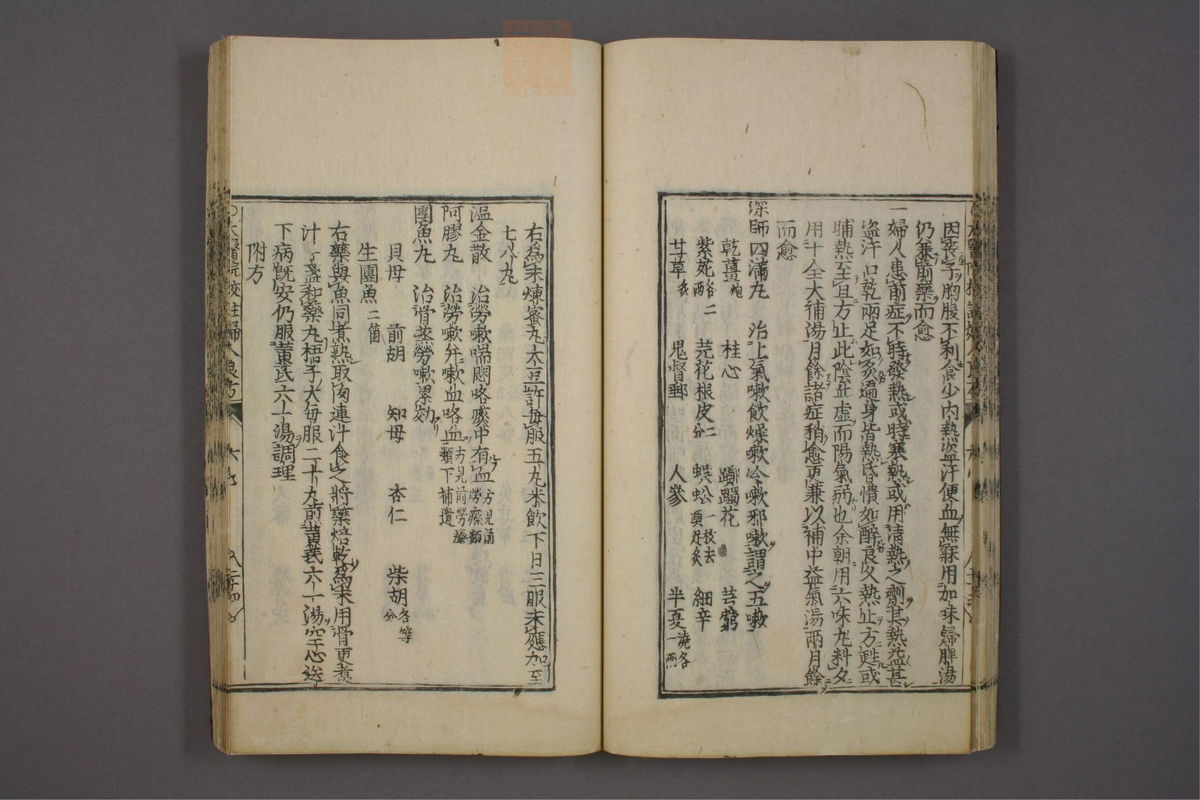 因喪子胸腹不利食少內熱盜汗便血無寐用加味歸脾湯
仍兼前藥而愈
一婦人患前症不時發熱或時寒熱或用清熱之劑其熱益甚
盜汗口乾兩足如炙遍身皆熱昏憒如醉良久熱止方甦或
晡熱至旦方止此陰血虛而陽氣弱也余朝用六味丸料夕
用十全大補湯月餘諸症稍愈更兼以補中益氣湯兩月餘
而愈
深師四滿丸 治上氣嗽飲燥嗽冷嗽邪嗽謂之五嗽
乾薑炮 桂心 躑躅花 芎藭
紫菀各二兩 芫花根皮二分 蜈蚣一枚去頭足炙 細辛
甘草炙 鬼督郵 人參 半夏洗各一兩
右爲末煉蜜丸大豆許每服五丸米飲下日三服未應加至
七八丸
溫金散 治勞嗽喘悶咯痰中有血方見涌勞瘵類
阿膠丸 治勞嗽并嗽血咯血方見前勞瘵類下補遺
團魚丸 治骨蒸勞嗽累效
貝母 前胡 知母 杏仁 柴胡各等分
生團魚二箇
右藥與魚同煮熟取肉連汁食之將藥焙乾爲末用骨更煮
汁一盞和藥丸梧子大每服二十丸煎黃芪六一湯空心送
下病既安仍服黃芪六一湯調理
附方